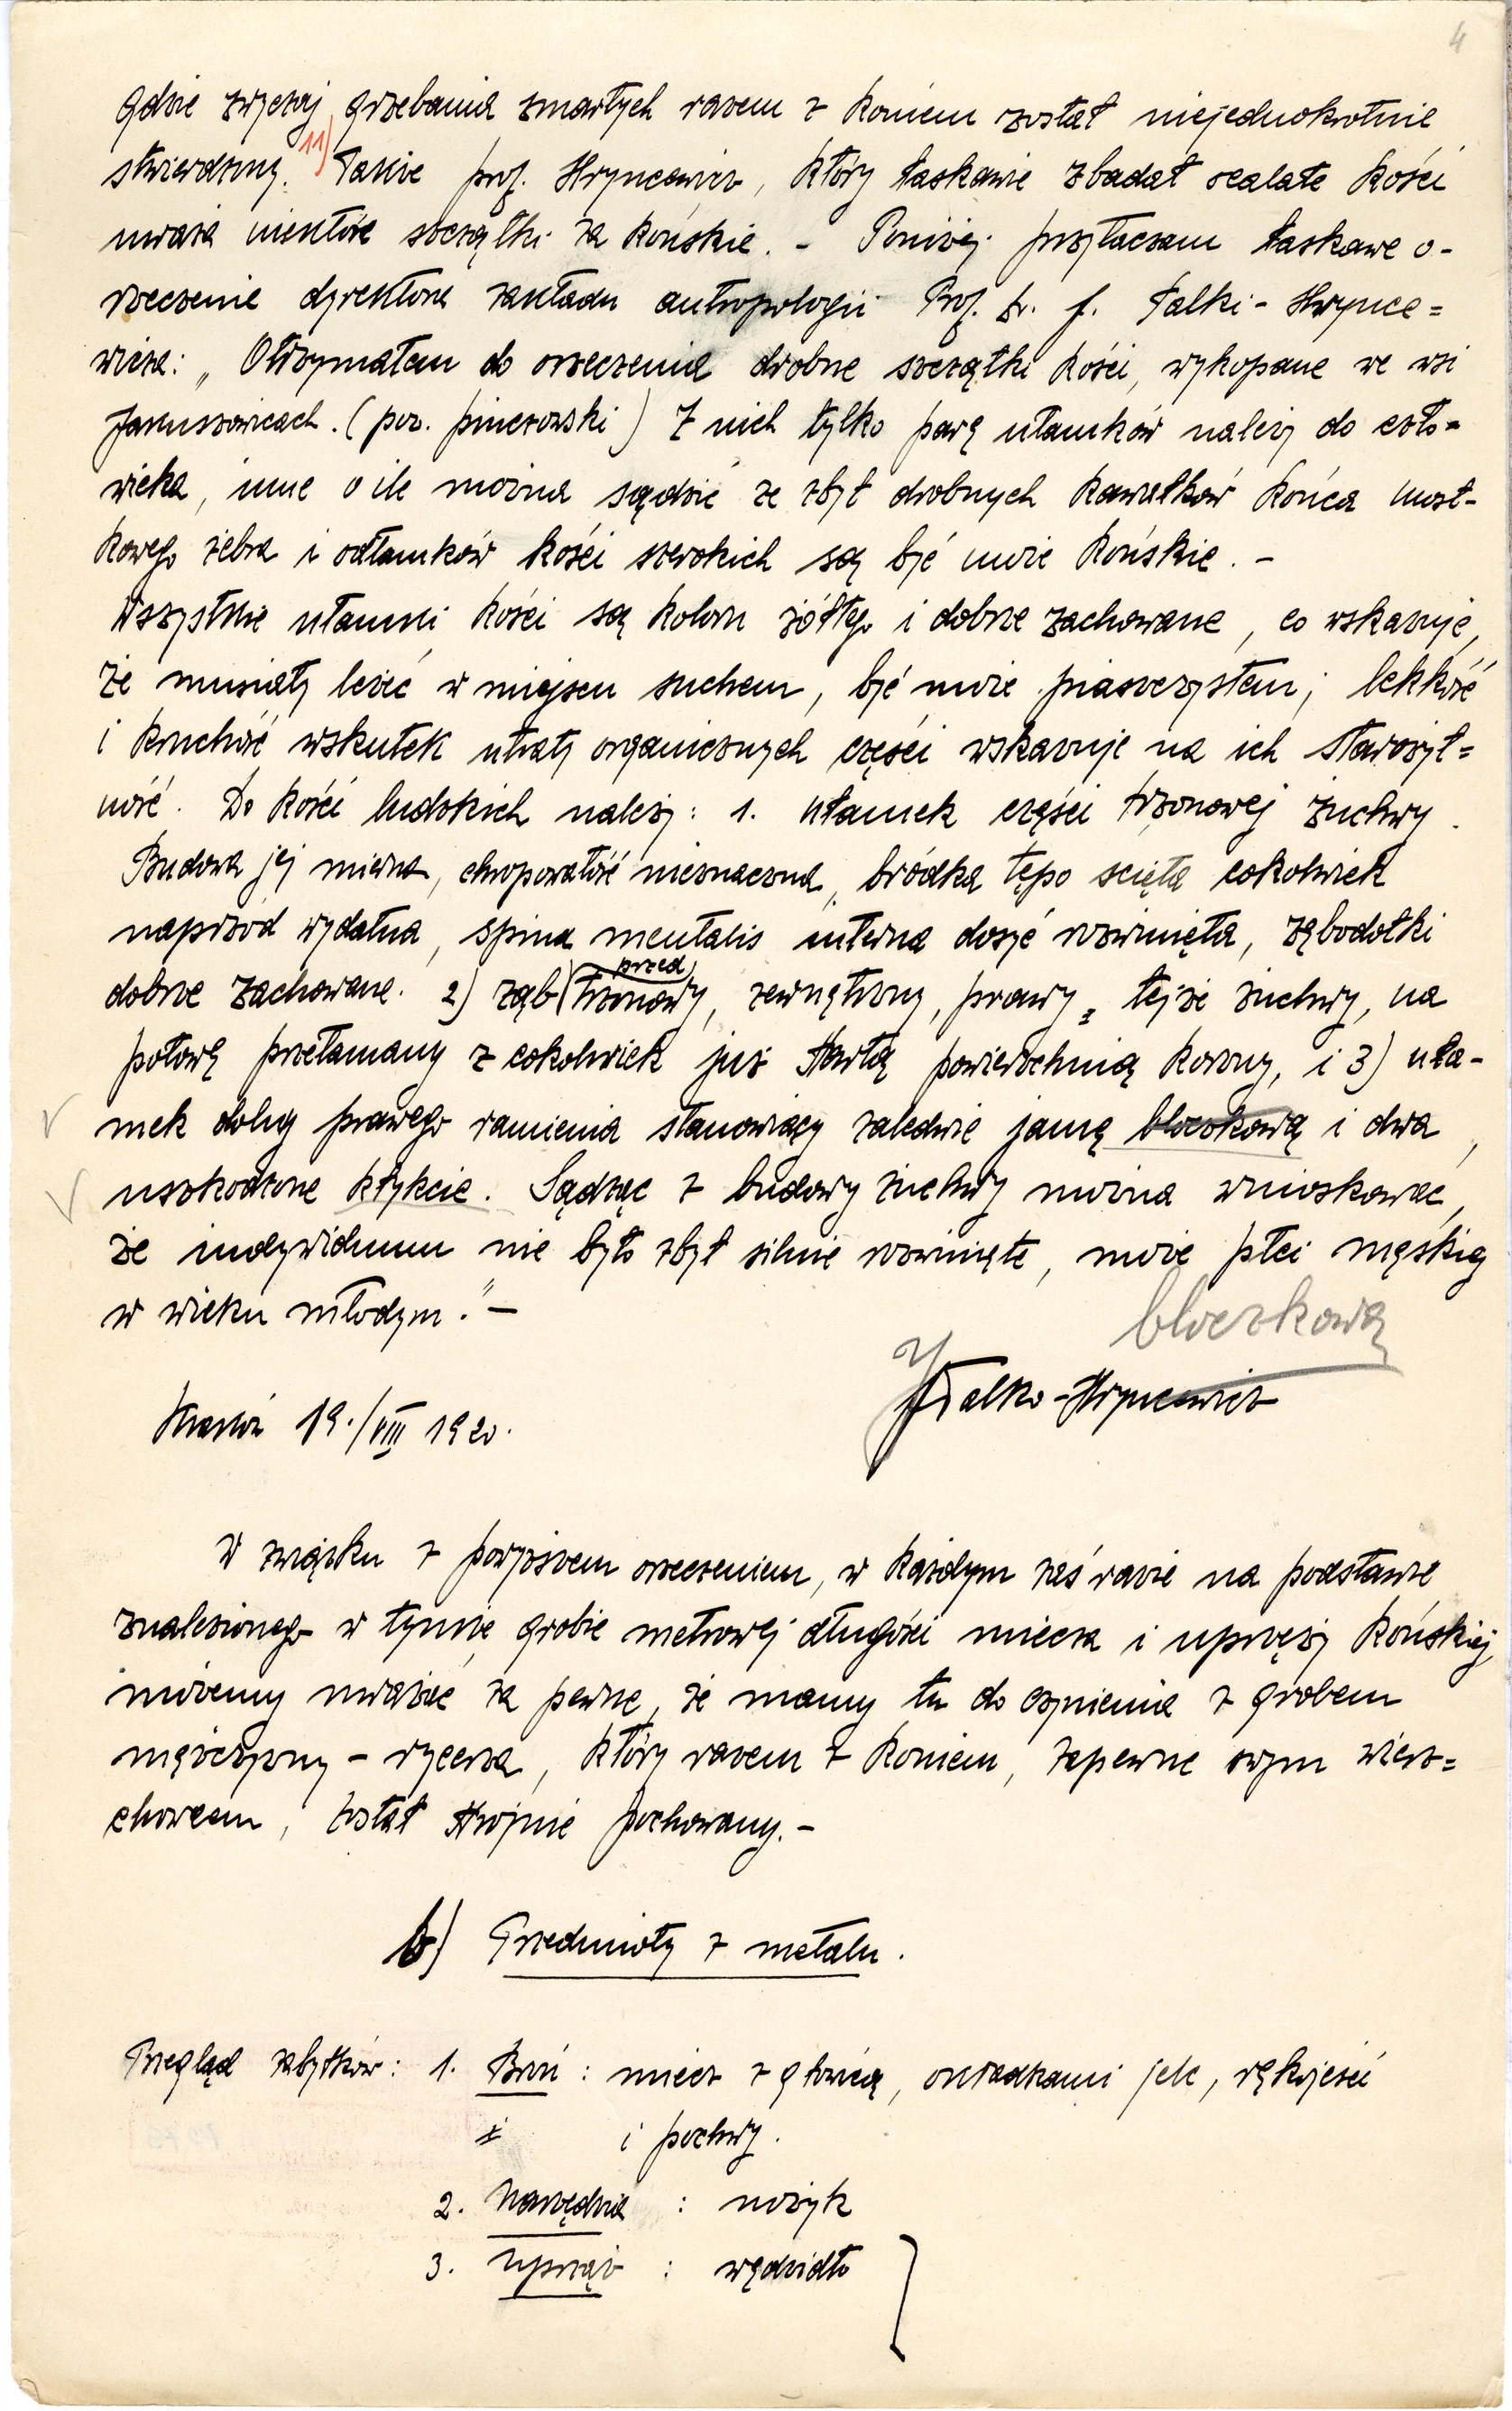 4
gdzie zwyczaj grzebania zmarłych razem z koniem został niejednokrotnie
stwierdzony. 11) Także prof. Hryncewicz, który łaskawie zbadał ocalałe kości
uważa niektóre szczątki za końskie. – Poniżej przytaczam łaskawe o-
rzeczenie dyrektora zakładu antropologii Prof. Dr. J. Talki-Hrynce=
wicza: „Otrzymałem do orzeczenia drobne szczątki kości, wykopane we wsi
Januszowicach. (pow. pinczowski) Z nich tylko parę ułamków należy do czło=
wieka, inne o ile można sądzić ze zbyt drobnych kawałków końca most-
kowego żebra i odłamków kości szerokich są być może końskie. –
Wszystkie ułamki kości są koloru żółtego i dobrze zachowane, co wskazuje,
że musiały leżeć w miejscu suchem, być może piaszczystem; lekkość
i kruchość wskutek utraty organicznych części wskazuje na ich starożyt=
ność. Do kości ludzkich należy: 1. ułamek części trzonowej żuchwy.
Budowa jej mierna, chropowatość nieznaczna, bródka tępo ścięta cokolwiek
naprzód wydatna, spina mentalis interna dosyć rozwinięta, zębodołki
dobrze zachowane. 2) ząb (przed)
trzonowy, zewnętrzny, prawy z tejże żuchwy, na
połowę przełamany z cokolwiek już startą powierzchnią korony, i 3) uła-
mek dolny prawego ramienia stanowiący zaledwie jamę bloczkową i dwa
uszkodzone kłykcie. Sądząc z budowy żuchwy można wnioskować,
że indywiduum nie było zbyt silnie rozwinięte, może płci męskiej
w wieku młodym." –
bloczkową
J Talko-Hryncewicz
Kraków 19./VIII 1920.
W związku z powyższem orzeczeniem, w każdym zaś razie na podstawie
znalezionego w tymże grobie metrowej długości miecza i uprzęży końskiej
możemy uważać za pewne, że mamy tu do czynienia z grobem
mężczyzny – rycerza, który razem z koniem, zapewne swym wierz=
chowcem, został strojnie pochowany. –
b) Przedmioty z metalu.
Przegląd zabytków: 1. Broń: miecz z głowicą, okładkami jelc, rękojeść
i pochwy.
2. Narzędzia : nożyk
3. uprząż : wędzidło }